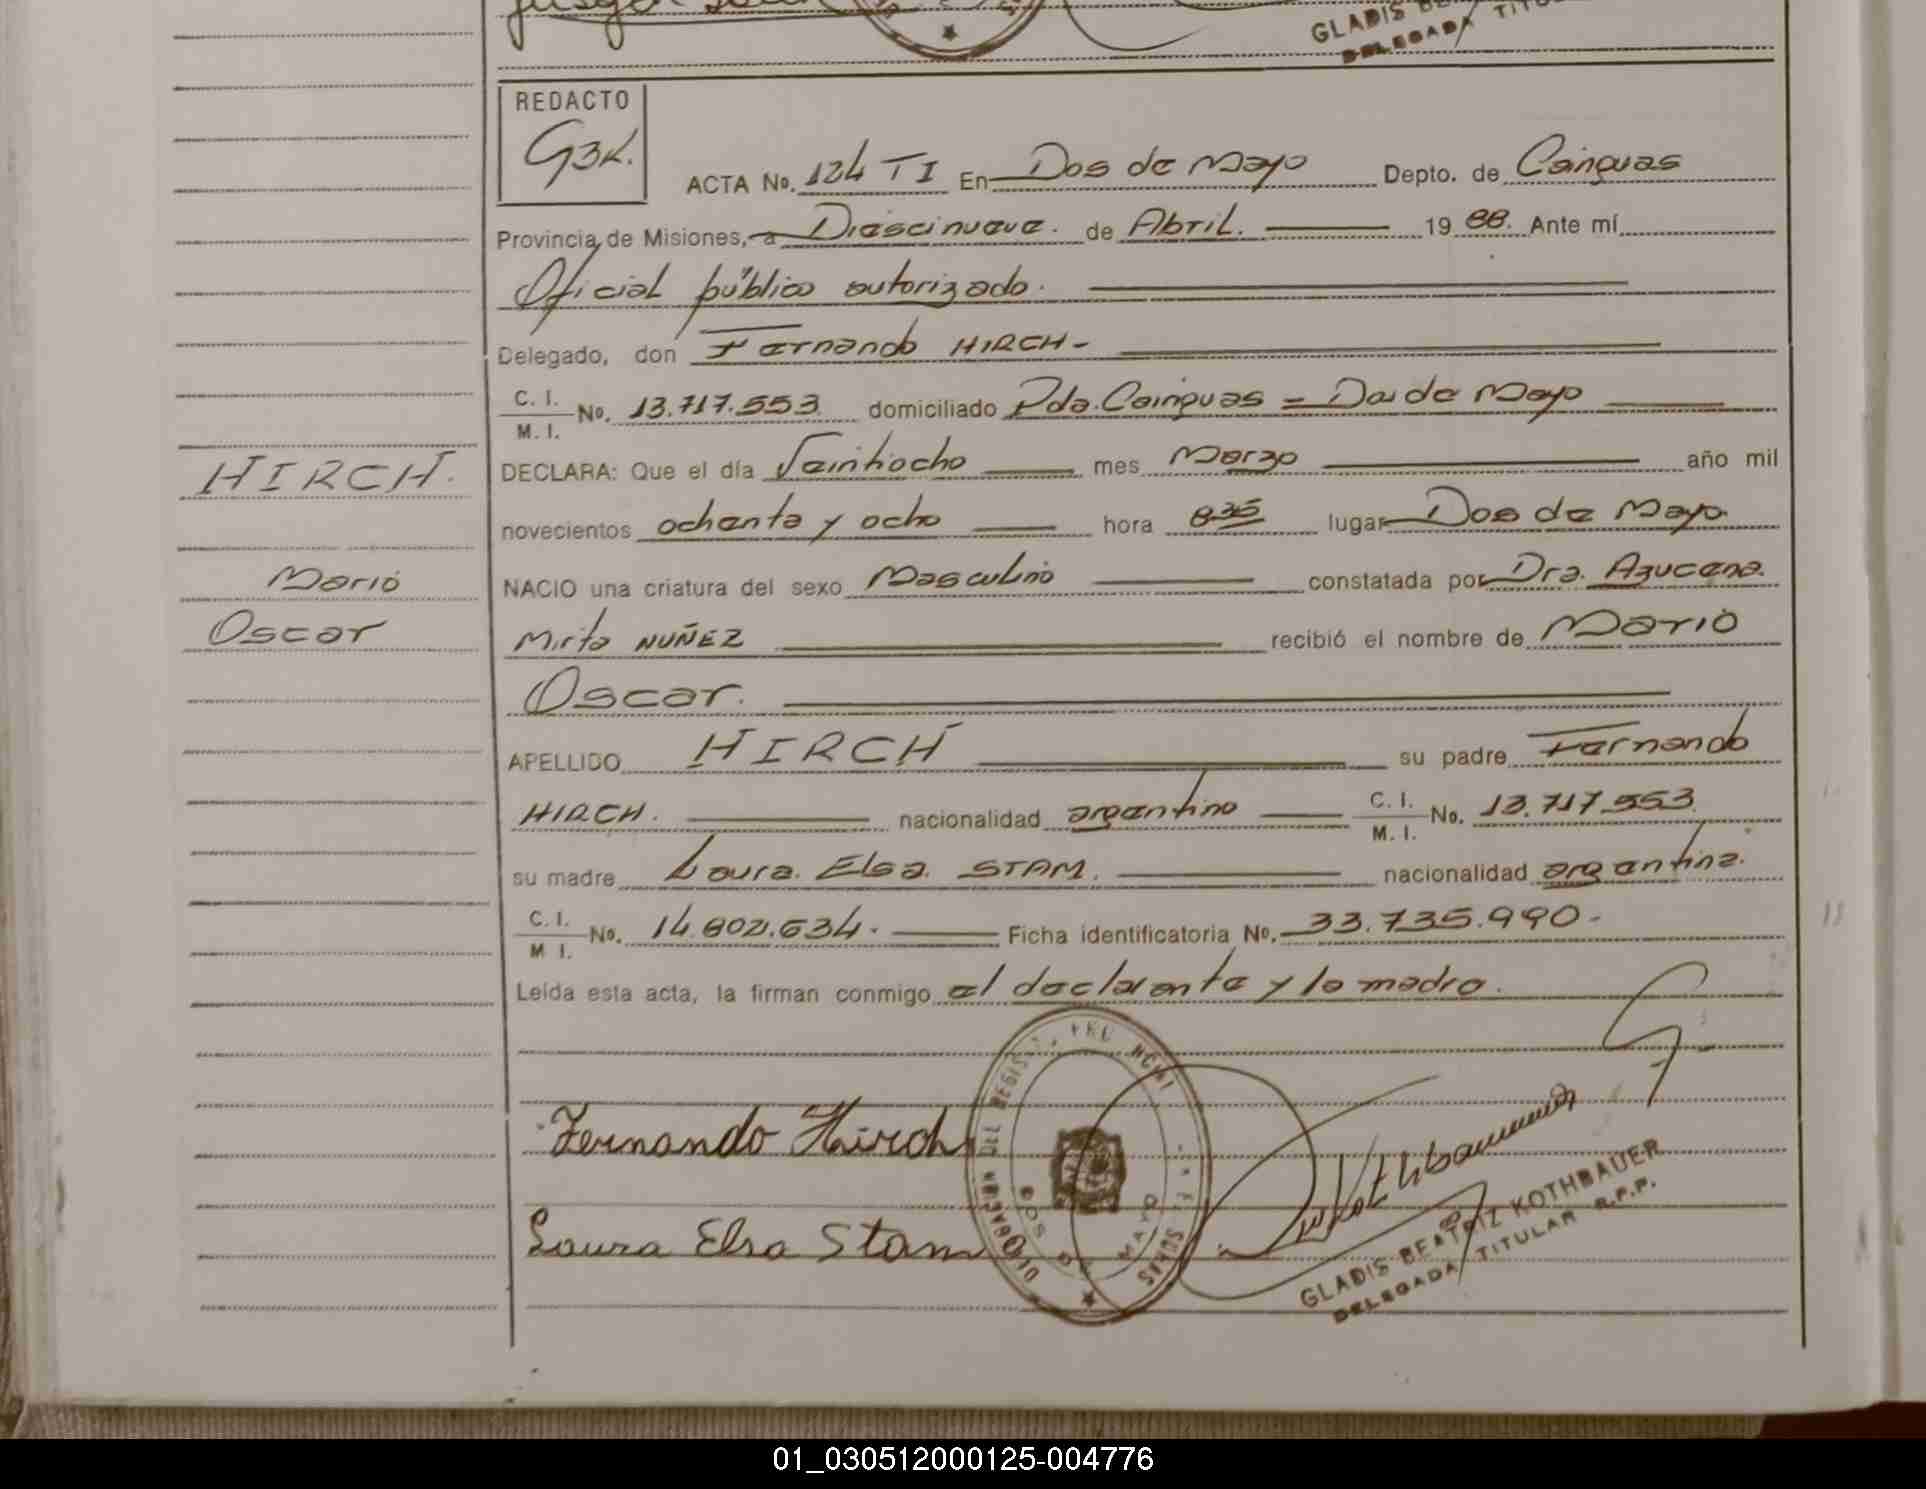 GLADIS
DELEGADA TITU
REDACTO
GBK.
ACTA No. 124 TI En Dos de Mayo Depto. de Cainguas
Provincia de Misiones, a Diescinueve. de Abril. 19 88. Ante mí
Oficial público autorizado.
Delegado, don Fernando HIRCH-
C. I. / M. I. No. 13.717.553 domiciliado Pda. Cainguas = Dos de Mayo
HIRCH.
DECLARA: Que el día Veintiocho mes Marzo año mil
novecientos ochenta y ocho hora 8:35 lugar Dos de Mayo
Mario
NACIO una criatura del sexo Masculino constatada por Dra. Azucena.
Oscar
Mirta NUÑEZ recibió el nombre de Mario
Oscar.
APELLIDO HIRCH su padre Fernando
HIRCH. nacionalidad argentino C. I. / M. I. No. 13.717.553
su madre Laura Elsa STAM. nacionalidad argentina.
C. I. / M. I. No. 14.802.634. Ficha identificatoria No. 33.735.990-
Leída esta acta, la firman conmigo el declarante y la madre.
Fernando Hirch
Laura Elsa Stam
DOS DE MAYO
GLADIS BEATRIZ KOTHBAUER
DELEGADA TITULAR R.P.P.
01_030512000125-004776